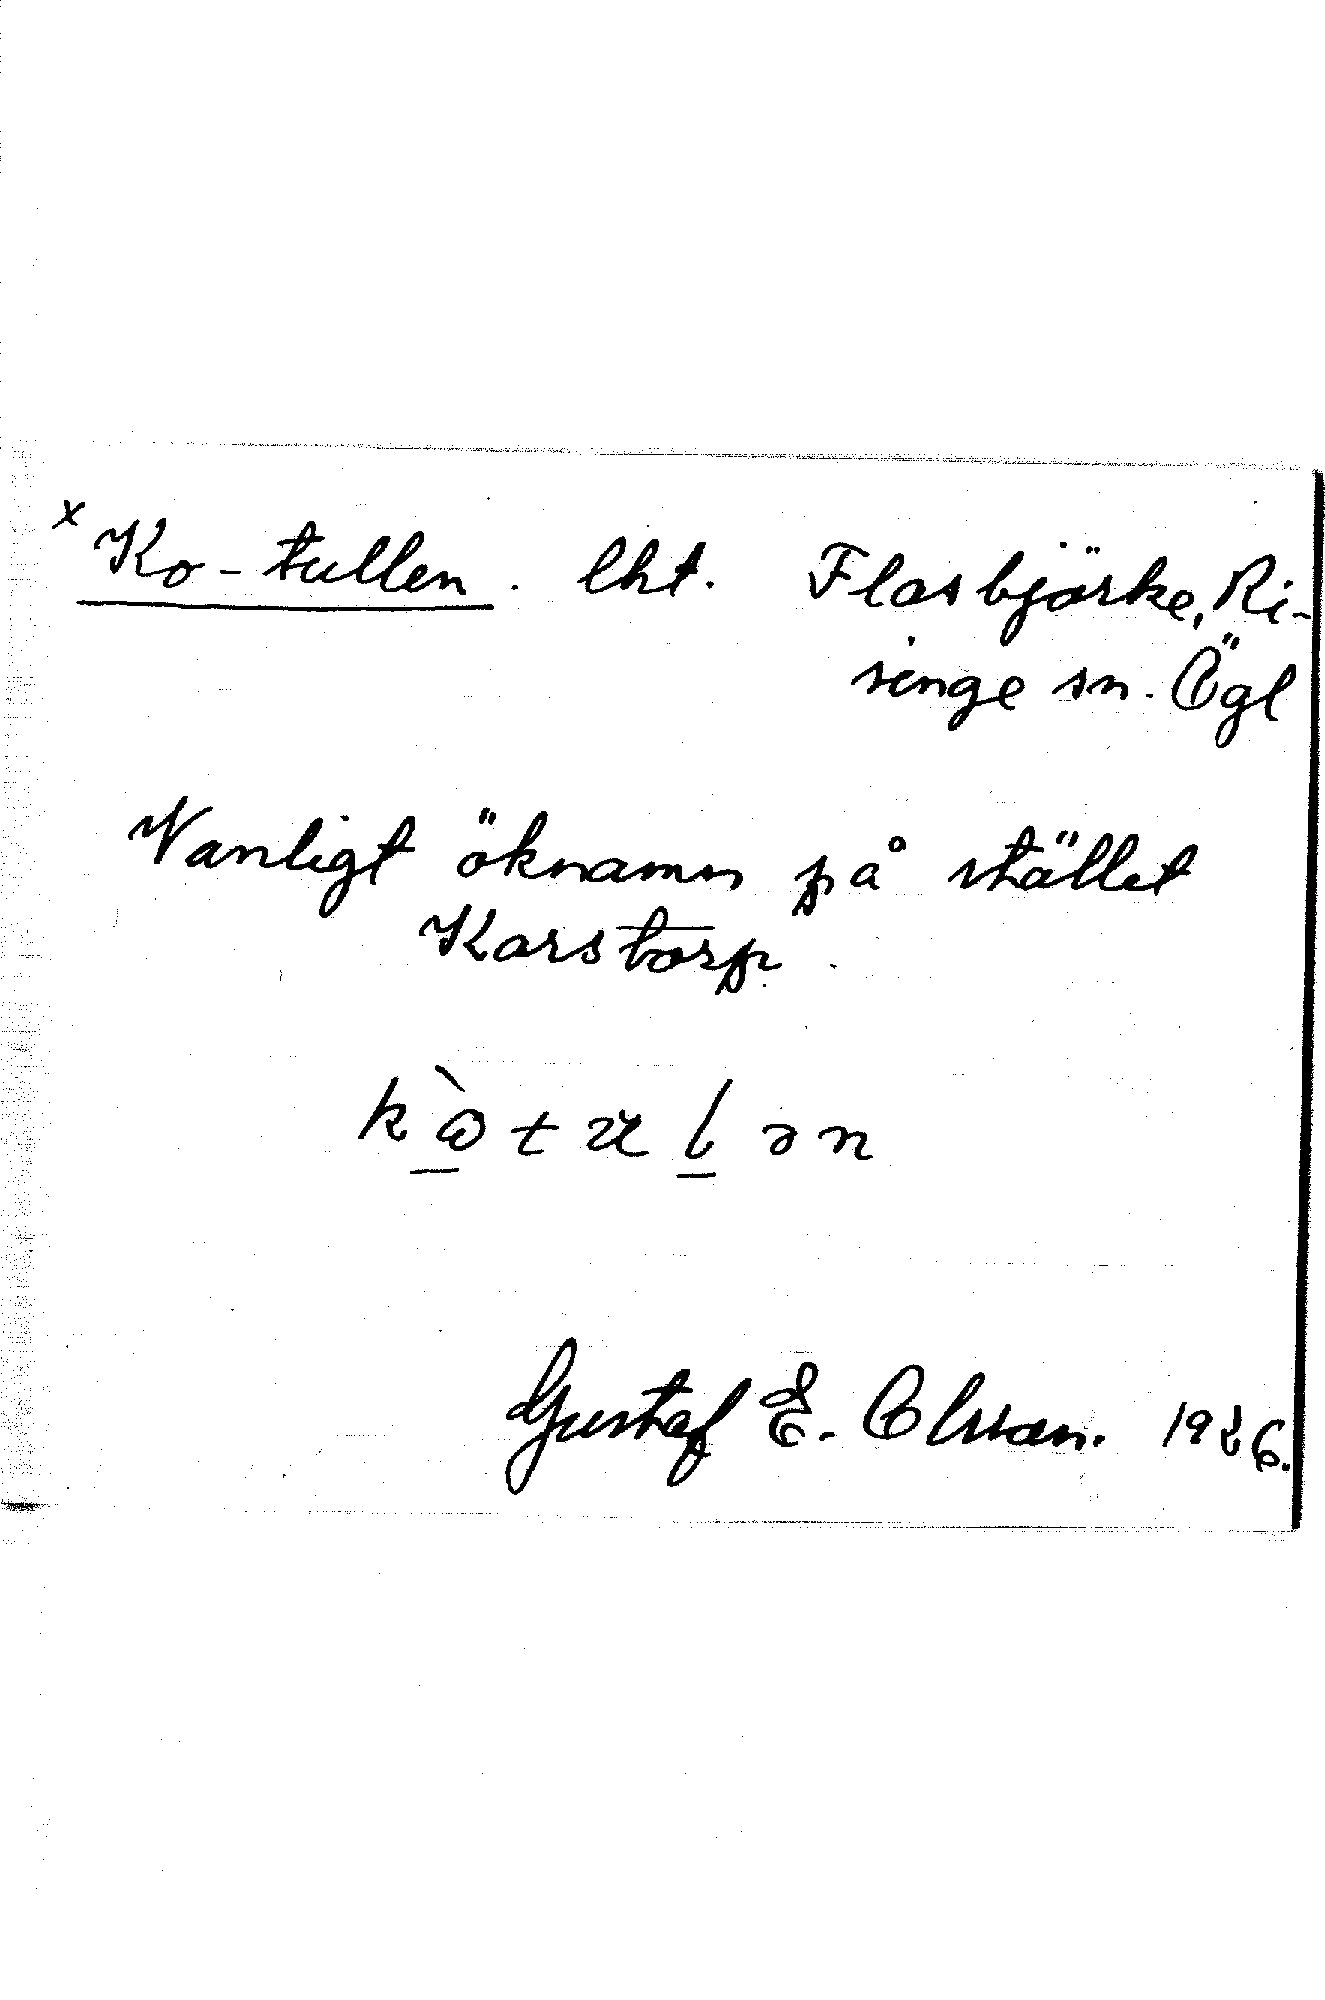 x Ko-tullen. lht. Flasbjörke, Ri-
singe sn. Ögl
Vanligt öknamn på stället
Karstorp.
Gustaf E. Olsson. 1926.